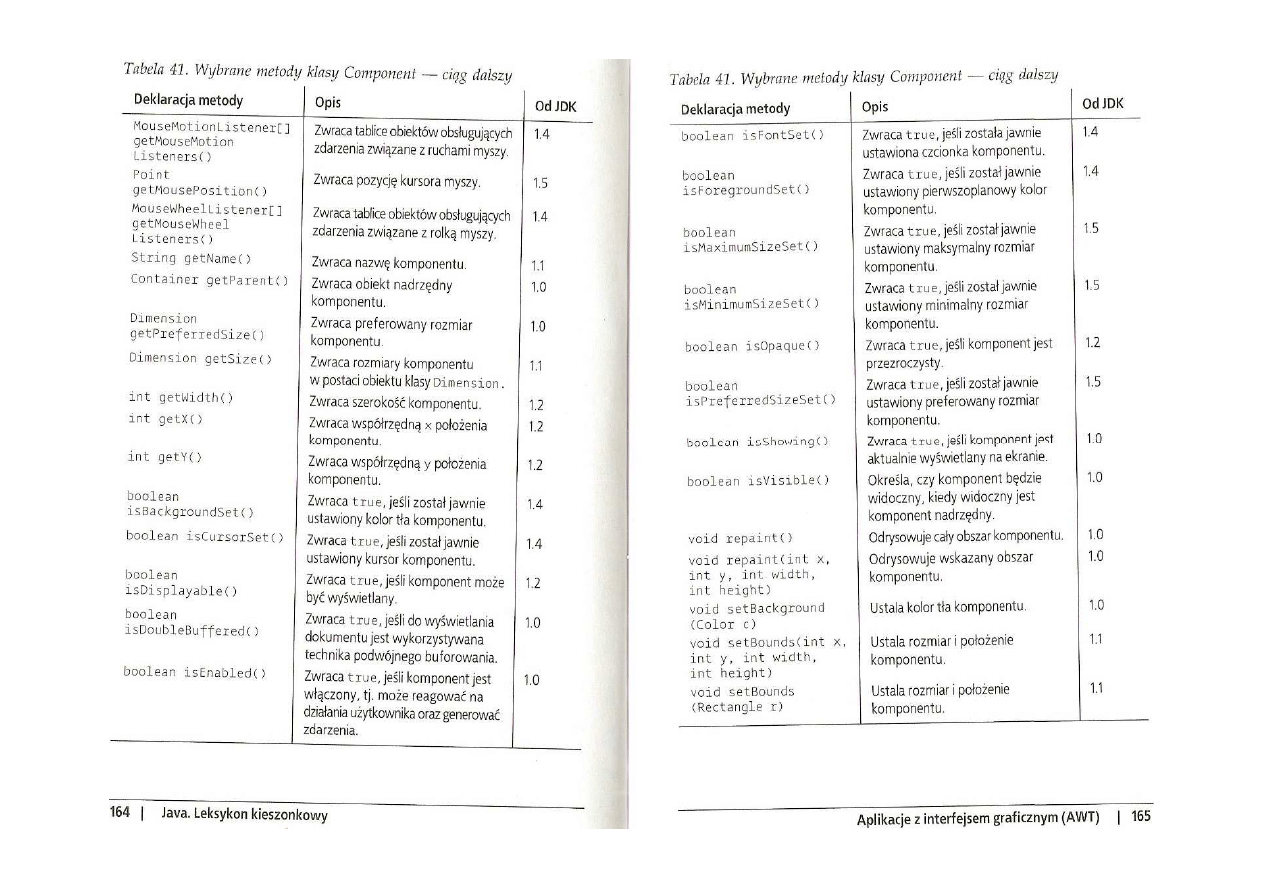 Tabela 41. Wybrane metody klasy Component — ciąg dalszy
Deklaracja metody Opis Od JDK
MouseMotionListener[] Zwraca tablice obiektów obsługujących 1.4
getMouseMotion zdarzenia związane z ruchami myszy.
Listeners()
Point Zwraca pozycję kursora myszy. 1.5
getMousePosition()
MouseWheelListener[] Zwraca tablice obiektów obsługujących 1.4
getMouseWheel zdarzenia związane z rolką myszy.
Listeners()
String getName() Zwraca nazwę komponentu. 1.1
Container getParent() Zwraca obiekt nadrzędny 1.0
komponentu.
Dimension Zwraca preferowany rozmiar 1.0
getPreferredSize() komponentu.
Dimension getSize() Zwraca rozmiary komponentu 1.1
w postaci obiektu klasy Dimension.
int getWidth() Zwraca szerokość komponentu. 1.2
int getX() Zwraca współrzędną x położenia 1.2
komponentu.
int getY() Zwraca współrzędną y położenia 1.2
komponentu.
boolean Zwraca true, jeśli został jawnie 1.4
isBackgroundSet() ustawiony kolor tła komponentu.
boolean isCursorSet() Zwraca true, jeśli został jawnie 1.4
ustawiony kursor komponentu.
boolean Zwraca true, jeśli komponent może 1.2
isDisplayable() być wyświetlany.
boolean Zwraca true, jeśli do wyświetlania 1.0
isDoubleBuffered() dokumentu jest wykorzystywana
technika podwójnego buforowania.
boolean isEnabled() Zwraca true, jeśli komponent jest 1.0
włączony, tj. może reagować na
działania użytkownika oraz generować
zdarzenia.
164 | Java. Leksykon kieszonkowy
Tabela 41. Wybrane metody klasy Component — ciąg dalszy
Deklaracja metody Opis Od JDK
boolean isFontSet() Zwraca true, jeśli została jawnie 1.4
ustawiona czcionka komponentu.
boolean Zwraca true, jeśli został jawnie 1.4
isForegroundSet() ustawiony pierwszoplanowy kolor
komponentu.
boolean Zwraca true, jeśli został jawnie 1.5
isMaximumSizeSet() ustawiony maksymalny rozmiar
komponentu.
boolean Zwraca true, jeśli został jawnie 1.5
isMinimumSizeSet() ustawiony minimalny rozmiar
komponentu.
boolean isOpaque() Zwraca true, jeśli komponent jest 1.2
przezroczysty.
boolean Zwraca true, jeśli został jawnie 1.5
isPreferredSizeSet() ustawiony preferowany rozmiar
komponentu.
boolean isShowing() Zwraca true, jeśli komponent jest 1.0
aktualnie wyświetlany na ekranie.
boolean isVisible() Określa, czy komponent będzie 1.0
widoczny, kiedy widoczny jest
komponent nadrzędny.
void repaint() Odrysowuje cały obszar komponentu. 1.0
void repaint(int x, Odrysowuje wskazany obszar 1.0
int y, int width, komponentu.
int height)
void setBackground Ustala kolor tła komponentu. 1.0
(Color c)
void setBounds(int x, Ustala rozmiar i położenie 1.1
int y, int width, komponentu.
int height)
void setBounds Ustala rozmiar i położenie 1.1
(Rectangle r) komponentu.
Aplikacje z interfejsem graficznym (AWT) | 165